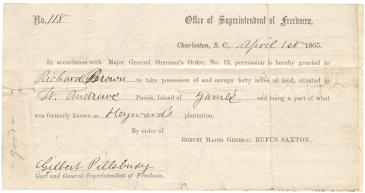 No. 118
Office of Superintendent of Freedmen,
Charleston, S. C., April 1st 1865.
In accordance with Major General Sherman's Order, No. 15, permission is hereby granted to
Richard Brown to take possession of and occupy forty acres of land, situated in
St. Andrews Parish, Island of James and being a part of what
was formerly known as Heyward's plantation.
By order of
Brevet Major General RUFUS SAXTON,
Gilbert Pillsbury
Gen'l Superintendent of Freedmen.